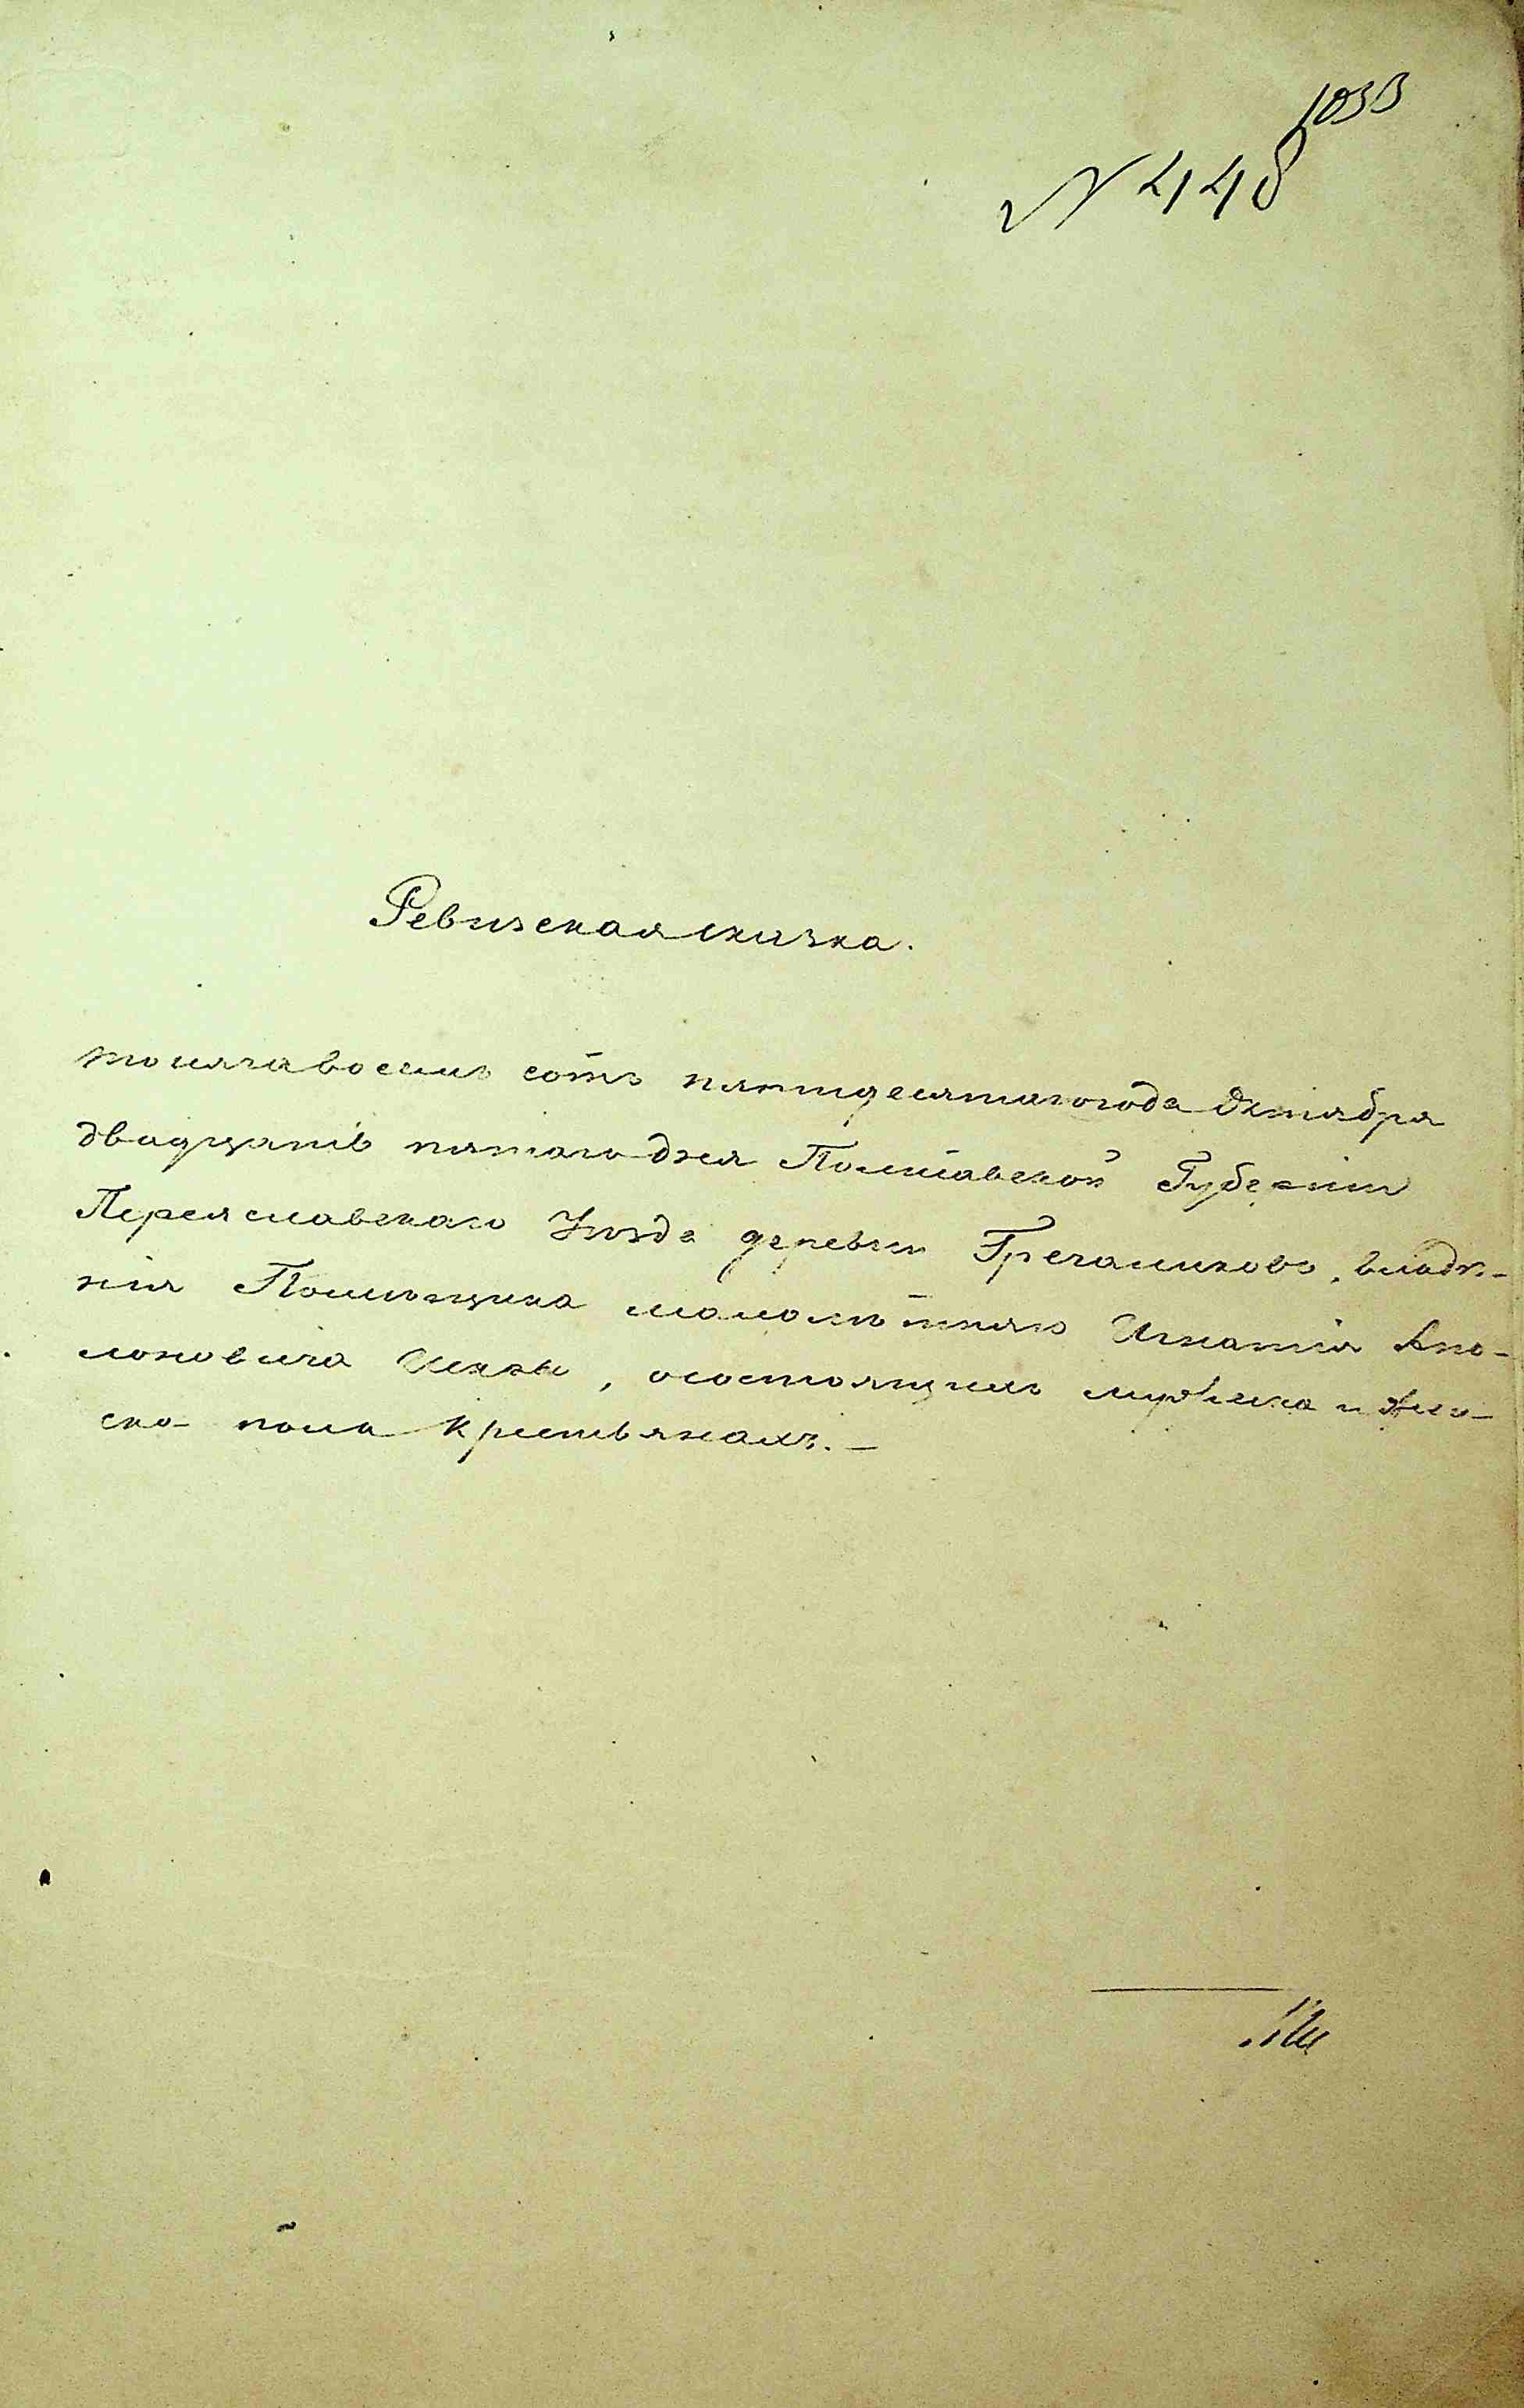 1033
№ 448
Ревизская сказка.
тысяча восемь сотъ пятидесятаго года Октября
двадцать пятаго дня Полтавской Губерніи
Переяславскаго Уезда деревни Гречаниково, владѣ-
нія Помещика малолѣтняго Игнатія Апо-
лоновича, осостоящихъ мужеска и жен-
ско пола крестьянахъ. —